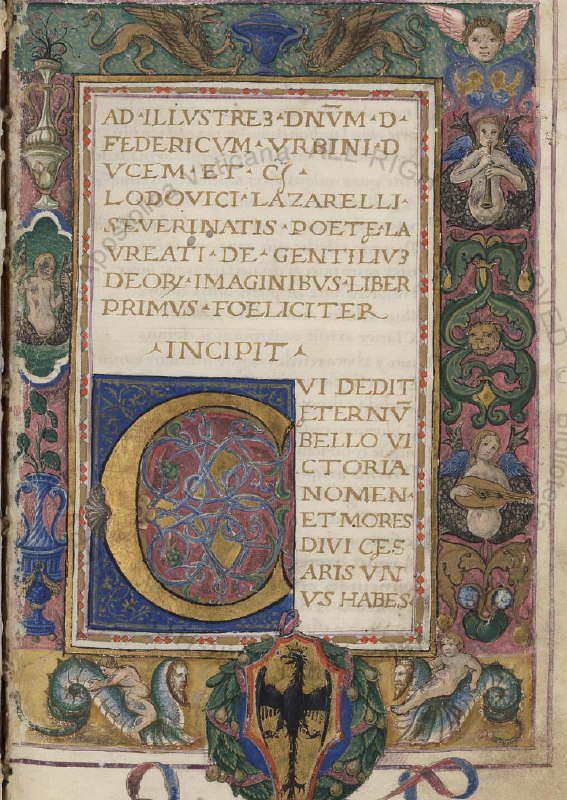 AD·ILLVSTREꝫ·DNV̄M·D·
FEDERICVM·VRBINI·D
VCEM·ET·Cꝭ·
LODOVICI·LAZARELLI·
SEVERINATIS·POETĘ·LA
VREATI·DE·GENTILIVꝫ
DEOꝜ·IMAGINIBUS·LIBER
PRIMVS·FOELICITER
·INCIPIT·
CVI DEDIT
ĘTERNV̄
BELLO VI
CTORIA
NOMEN·
ET MORES
DIVI CĘS
ARIS VN
VS HABES·